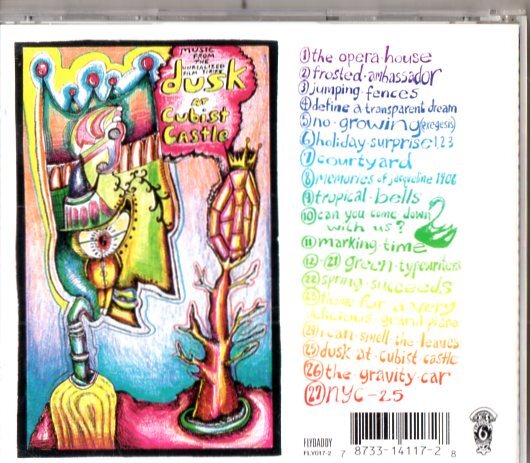 MUSIC
FROM THE
UNREALIZED
FILM SCRIPT
dusk
AT
Cubist
Castle
1 the opera house
2 frosted ambassador
3 jumping fences
4 define a transparent dream
5 no growing (exegesis)
6 holiday surprise 1,2,3
7 courtyard
8 memories of jacqueline 1906
9 tropical bells
10 can you come down
with us?
11 marking time
12-21 green typewriters
22 spring succeeds
23 theme for a very
delicious grand piano
24 i can smell the leaves
25 dusk at cubist castle
26 the gravity car
27 NYC-25
FLYDADDY
FLY017-2
7 8733-14117-2 8
6